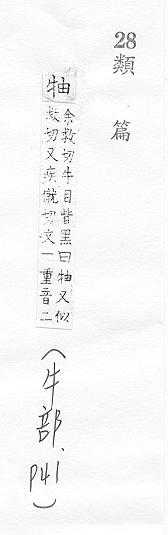 28
類篇
牰
余救切牛目眥黑曰牰又似
救切又疾僦切文一重音二
(牛部、P41)